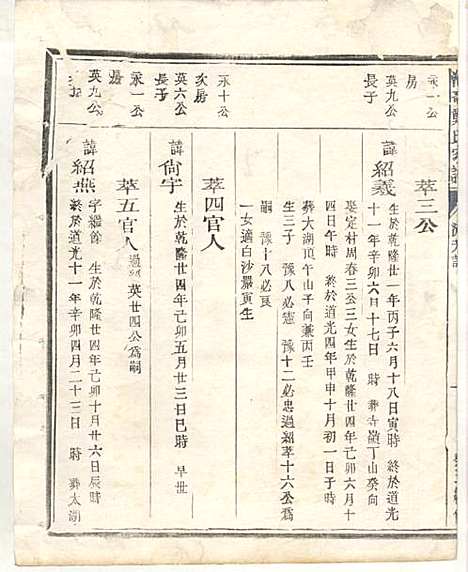 永一公
英九公
長子
萃三公
諱紹羲
生於乾隆廿一年丙子六月十八日寅時 終於道光
十一年辛卯六月十七日 時 葬寺嶺丁山癸向
娶定村周春三公三女生於乾隆廿四年己卯二月十
四日午時 終於道光四年甲申十月初一日子時
葬大湖頂午山子向兼丙壬
生三子 豫八必憲 豫十二必忠過紹萃十六公為
嗣 豫十八必良
一女適白沙嚴寅生
永十公
次房
英六公
長子
萃四官人
諱尙宇
生於乾隆廿四年己卯五月廿三日巳時 早世
永一公
房
英九公
萃五官人
過 英廿四公為嗣
諱紹燕
字繼餘 生於乾隆廿四年己卯十月廿六日辰時
終於道光十一年辛卯四月二十三日 時 葬太湖